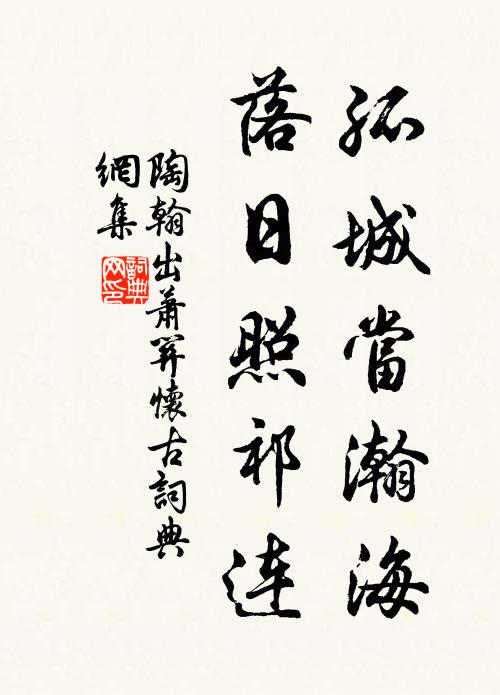 孤城當瀚海
落日照祁連
陶翰出蕭關懷古詞典
網集
詞典
网印